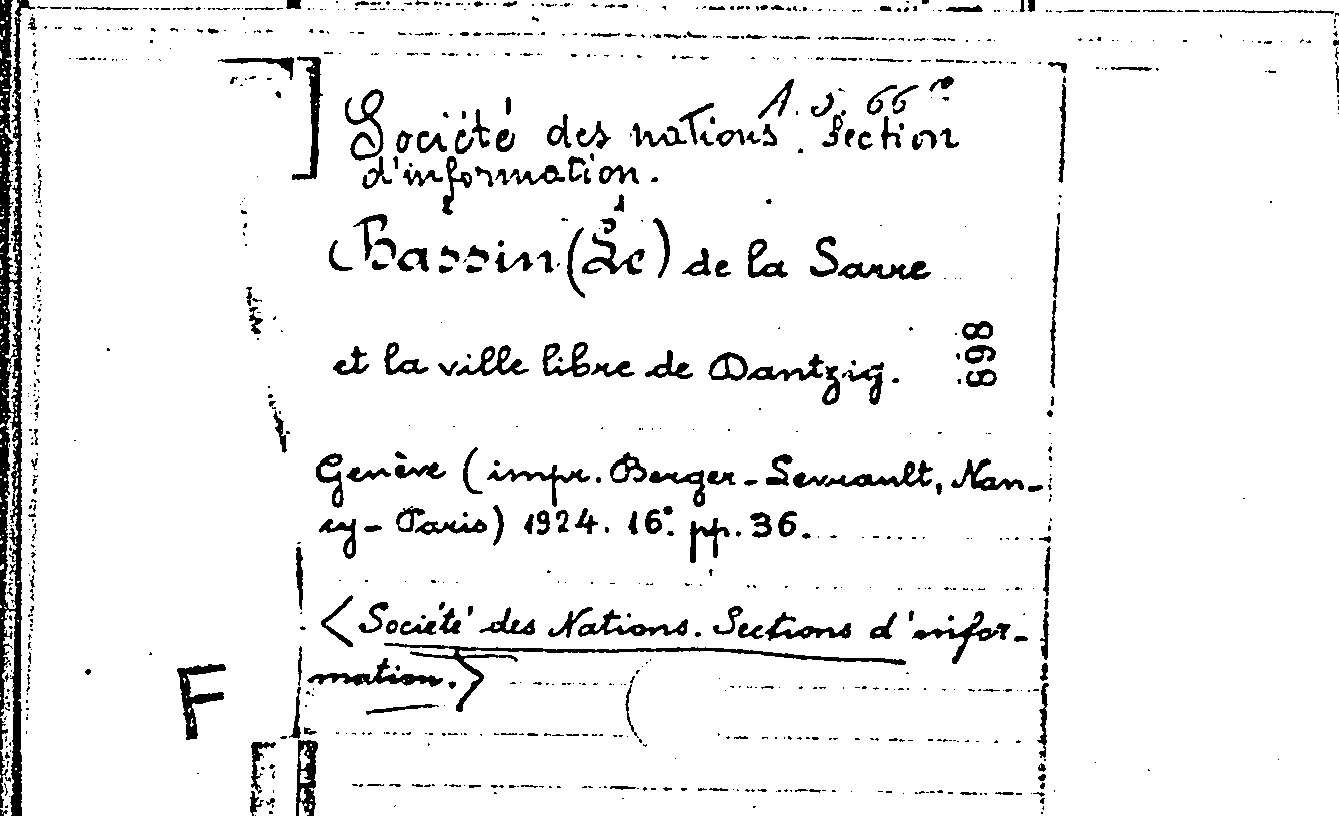 1. J. 66 ro
Société des nations. Section
d'information.
2 1
Bassin (Le) de la Sarre
et la ville libre de Dantzig.
869
Genève (impr. Berger-Levrault, Nan-
cy-Paris) 1924. 16° pp. 36.
<Société des Nations. Sections d'infor-
mation.>
F